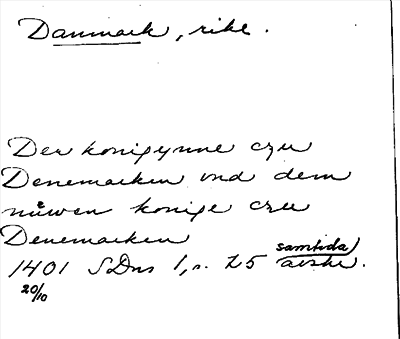 Danmark, rike.
Der konigynne czu
Denemarken vnd dem
nůwen konige czu
Denemarken
samtida
1401 SDns 1, s. 25 avskr.
20/10